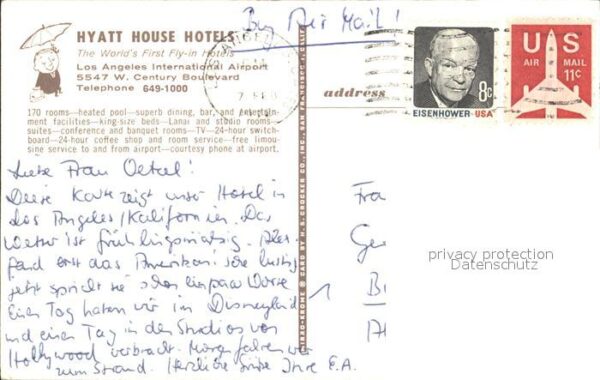 By Air Mail!
HYATT HOUSE HOTELS
The World's First Fly-in Hotels
Los Angeles International Airport
5547 W. Century Boulevard
Telephone 649-1000
170 rooms—heated pool—superb dining, bar, and entertain-
ment facilities—king size beds—Lanai and studio rooms—
suites—conference and banquet rooms—TV—24-hour switch-
board—24-hour coffee shop and room service—free limou-
sine service to and from airport—courtesy phone at airport.
address
8c
EISENHOWER·USA
US
AIR MAIL
11c
Liebe Frau Oetsel!
Diese Karte zeigt unser Hotel in
Los Angeles/Kalifornien. Das
Wetter ist frühlingsmäßig.
fand erst das Amerikanische lustig
jetzt spricht sie schon ein paar Worte
Einen Tag haben wir im Disneyland
und einen Tag in den Studios von
Hollywood verbracht. Morgen fahren wir
zum Strand. Herzliche Grüße Ihre E.A.
Fra
Ge
B
privacy protection
Datenschutz